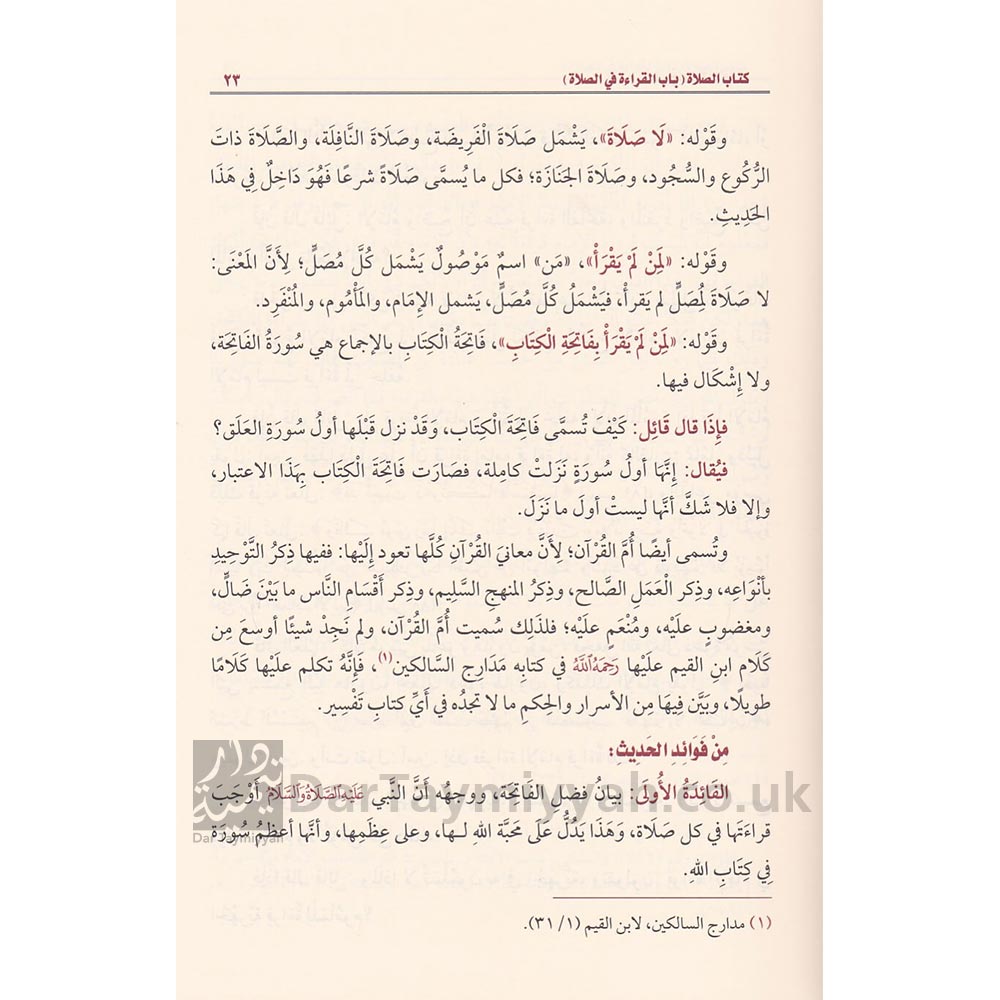 كتاب الصلاة (باب القراءة في الصلاة) ٢٣
وقَوْله: «لَا صَلَاةَ»، يَشْمَل صَلَاةَ الْفَرِيضَة، وصَلَاةَ النَّافِلَة، والصَّلَاةَ ذاتَ
الرُّكُوع والسُّجُود، وصَلَاةَ الجَنَازَة؛ فكل ما يُسمَّى صَلَاةً شرعًا فَهُوَ دَاخِلٌ فِي هَذَا
الحَدِيثِ.
وقَوْله: «لِمَنْ لَمْ يَقْرَأْ»، «مَن» اسمٌ مَوْصُولٌ يَشْمَل كُلَّ مُصَلٍّ؛ لِأَنَّ المَعْنَى:
لا صَلَاةَ لِمُصَلٍّ لم يَقرأْ، فيَشْمَلُ كُلَّ مُصَلٍّ، يَشمل الإِمَام، والمَأْمُوم، والمُنْفَرِد.
وقَوْله: «لِمَنْ لَمْ يَقْرَأْ بِفَاتِحَةِ الْكِتَابِ»، فَاتِحَةُ الْكِتَابِ بالإجماع هي سُورَةُ الفَاتِحَة،
ولا إِشْكَال فيها.
فإِذَا قال قَائِل: كَيْفَ تُسمَّى فَاتِحَةَ الْكِتَاب، وَقَدْ نزل قَبْلَها أولُ سُورَةِ العَلَق؟
فيُقال: إِنَّهَا أولُ سُورَةٍ نَزَلَتْ كاملة، فصَارَت فَاتِحَةَ الْكِتَاب بِهَذَا الاعتبار،
وإلا فلا شَكَّ أنَّها ليستْ أولَ ما نَزَلَ.
وتُسمى أيضًا أُمَّ القُرْآن؛ لِأَنَّ معانيَ القُرْآنِ كُلَّها تعود إِلَيْها: ففيها ذِكرُ التَّوْحِيدِ
بأنْوَاعِه، وذِكر الْعَمَلِ الصَّالح، وذِكرُ المنهجِ السَّلِيم، وذِكر أَقْسَامِ النَّاس ما بَيْنَ ضَالٍّ،
ومغضوبٍ علَيْه، ومُنْعَمٍ علَيْه؛ فلذَلِك سُميت أُمَّ القُرْآن، ولم نَجِدْ شيئًا أوسعَ مِن
كَلَام ابنِ القيم علَيْها رَحِمَهُ ٱللَّهُ في كتابه مَدَارِج السَّالكين(١)، فَإِنَّهُ تكلم علَيْها كَلَامًا
طويلًا، وبَيَّن فِيهَا مِن الأسرار والحِكمِ ما لا تجدُه في أَيِّ كتابِ تَفْسِير.
مِنْ فَوَائِدِ الحَدِيث:
الفَائِدَةُ الأُولَى: بيانُ فضلِ الفَاتِحَة، ووجهُه أَنَّ النَّبي عَلَيْهِ ٱلصَّلَاةُ وَٱلسَّلَامُ أَوْجَبَ
قراءَتَها في كل صَلَاة، وَهَذَا يَدُلُّ عَلَى مَحبَّة اللهِ لـها، وعلى عِظَمِها، وأنَّها أعظمُ سُورَة
فِي كِتَابِ اللهِ.
(١) مدارج السالكين، لابن القيم (١/ ٣١).
DarTaymiyyah.co.uk
Dar Taymiyyah